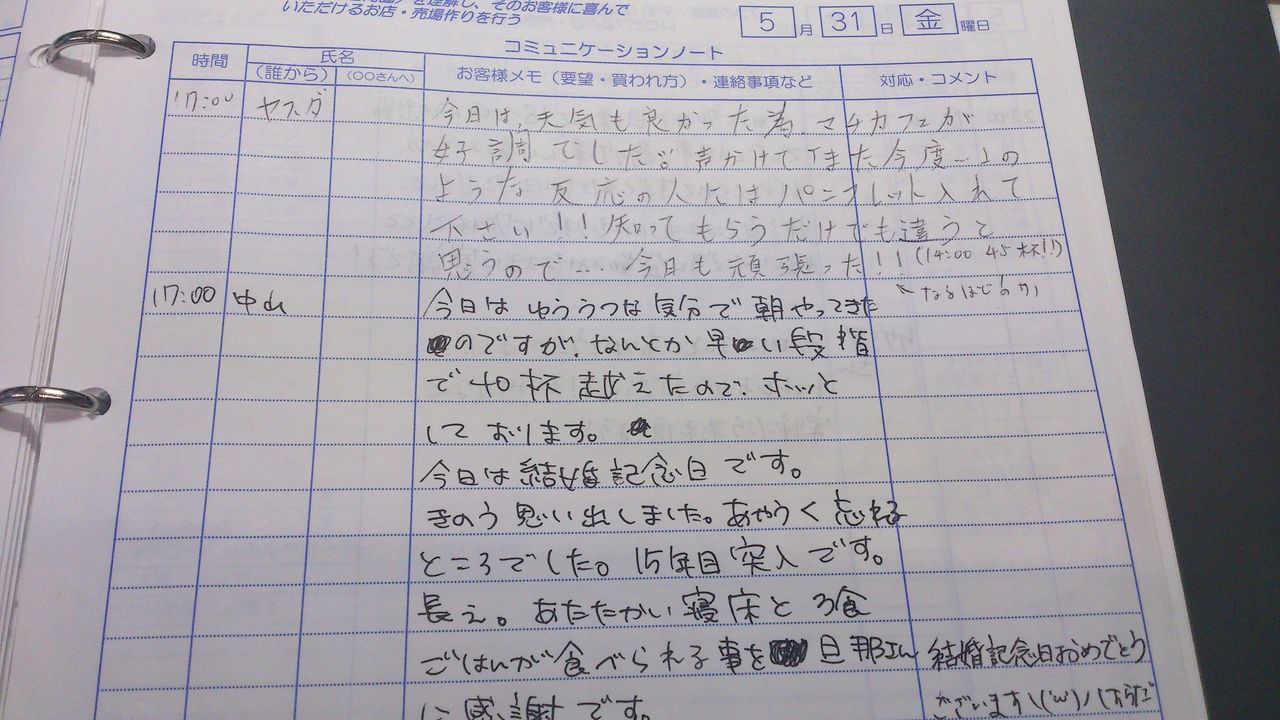 を理解し、そのお客様に喜んで
いただけるお店・売場作りを行う
5月31日 金曜日
コミュニケーションノート
時間 氏名 お客様メモ(要望・買われ方)・連絡事項など 対応・コメント
(誰から) (○○さんへ)
17:00 ヤスダ 今日は、天気も良かった為、マチカフェが
好調でした。声かけて「また今度…」の
ような反応の人にはパンフレット入れて
下さい!!知ってもらうだけでも違うと
思うので… 今日も頑張った!!(14:00 45杯!!)
17:00 中山 今日はゆううつな気分で朝やってきた
なるほど!
のですが、なんとか早い段階
で40杯越えたので、ホッと
しております。
今日は結婚記念日です。
きのう思い出しました。あやうく忘れる
ところでした。15年目突入です。
長え。あたたかい寝床と3食
ごはんが食べられる事を旦那さん 結婚記念日おめでとう
に感謝です。 ございます\(^ω^)/